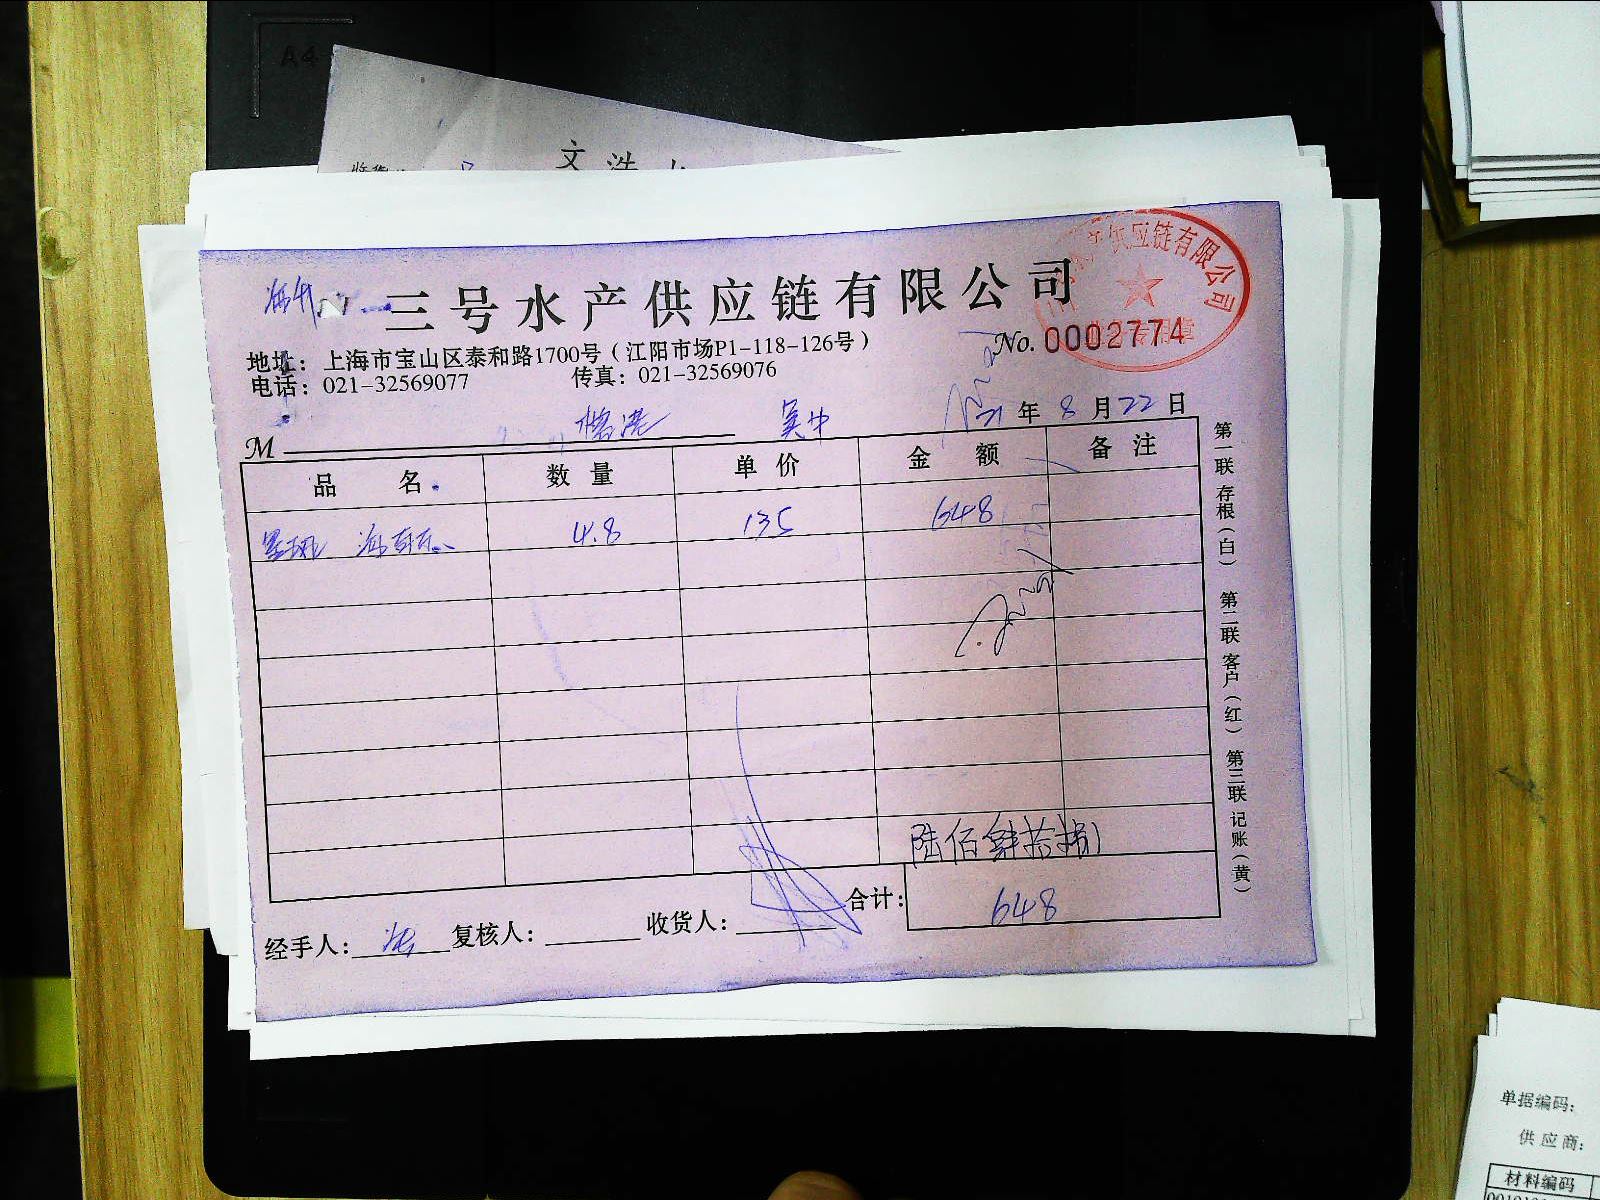 A4
文浩
三号水产供应链有限公司
供应链有限公司
地址：上海市宝山区泰和路1700号（江阳市场P1-118-126号）
No. 0002774
电话：021-32569077 传真：021-32569076
21年8月22日
M
品名 数量 单价 金额 备注
4.8 135 648
陆佰肆拾捌
合计：648
经手人： 复核人： 收货人：
第一联 存根（白） 第二联 客户（红） 第三联 记账（黄）
单据编码：
供应商：
材料编码